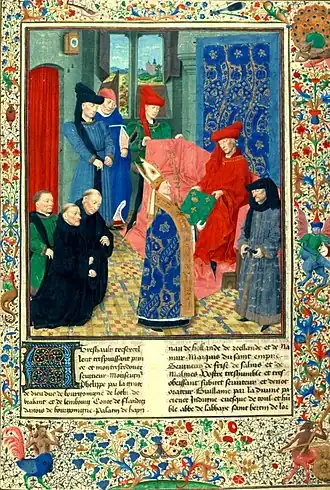 A treshault tresexcel
lent trespuissant prin
ce et mon tresredoubte
seigneur Monseigneur
Phelipe par la grace
de dieu duc de bourgoingne de loth. de
brabant et de lembourg Conte de Flandres
dartois de bourgoingne Palatin de hayn
nau de hollande de zeellande et de Na
mur Marquis du saint empire
Seigneur de frise de salins et de
Malines Vostre treshumble et tres
obeissant subiect serviteur et
orateur Guillaume par la divine pa
cience Indigne evesque de toul et hu
ble abbe de labbaye saint bertin de